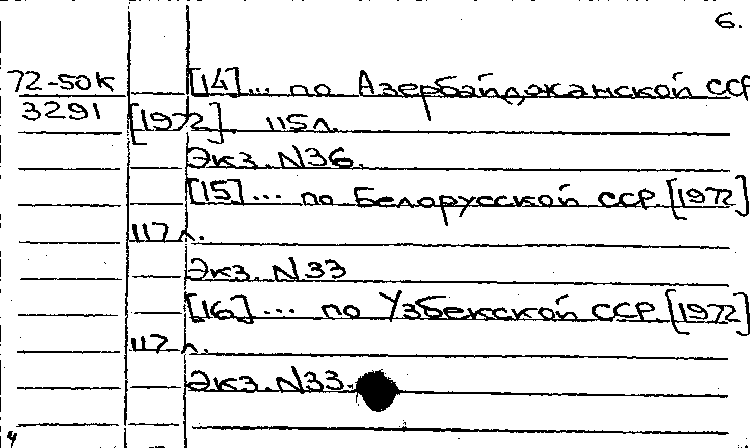 6.
72-50к [14]... по Азербайджанской ССР
3291 [1972]. 115л.
Экз. N36.
[15]... по Белорусской ССР. [1972]
117 л.
Экз. N33
[16]... по Узбекской ССР. [1972]
117 л.
Экз. N33.
4